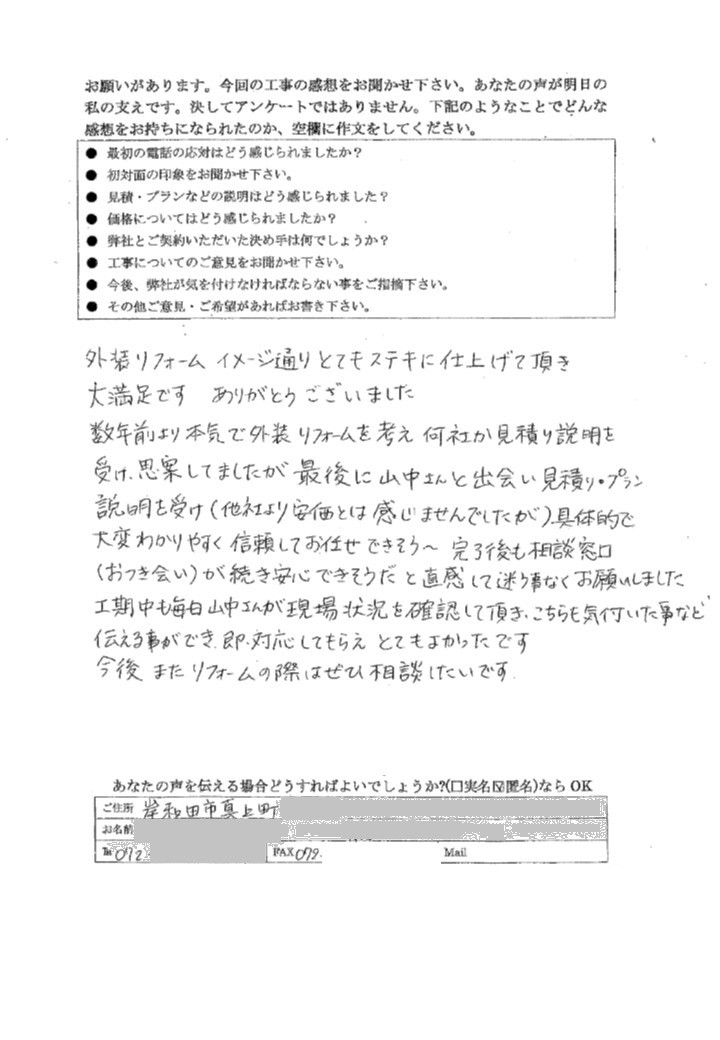 お願いがあります。今回の工事の感想をお聞かせ下さい。あなたの声が明日の
私の支えです。決してアンケートではありません。下記のようなことでどんな
感想をお持ちになられたのか、空欄に作文をしてください。
● 最初の電話の応対はどう感じられましたか？
● 初対面の印象をお聞かせ下さい。
● 見積・プランなどの説明はどう感じられました？
● 価格についてはどう感じられましたか？
● 弊社とご契約いただいた決め手は何でしょうか？
● 工事についてのご意見をお聞かせ下さい。
● 今後、弊社が気を付けなければならない事をご指摘下さい。
● その他ご意見・ご希望があればお書き下さい。
外装リフォーム イメージ通りとてもステキに仕上げて頂き
大満足です ありがとうございました
数年前より本気で外装リフォームを考え 何社か見積り説明を
受け、思案してましたが 最後に山中さんと出会い見積り・プラン
説明を受け(他社より安価とは感じませんでしたが)具体的で
大変わかりやすく信頼してお任せできそう〜 完了後も相談窓口
(おつき会い)が続き安心できそうだと直感して迷う事なくお願いしました
工期中も毎日山中さんが現場状況を確認して頂き、こちらも気付いた事など
伝える事ができ、即、対応してもらえ とてもよかったです
今後 またリフォームの際はぜひ相談したいです。
あなたの声を伝える場合どうすればよいでしょうか?(□実名☑匿名)なら OK
ご住所 岸和田市真上町
お名前
℡ 072
FAX 079.
Mail